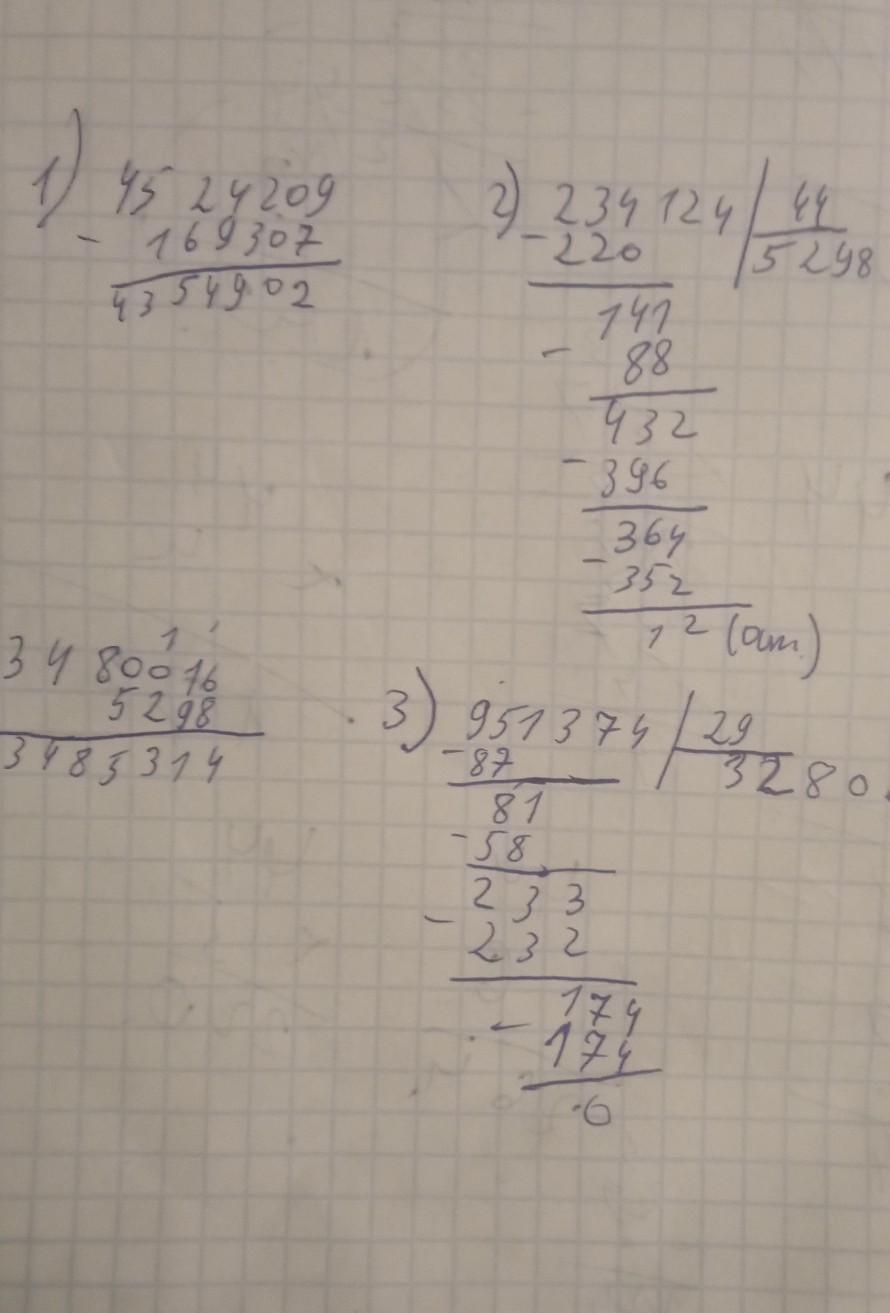 1) 4524209
- 169307
4354902
2) 234124 | 44
- 220 5298
141
- 88
432
- 396
364
- 352
12 (ост.)
1
3480016
5298
3485314
3) 951374 | 29
- 87 3280
81
- 58
233
- 232
174
- 174
0